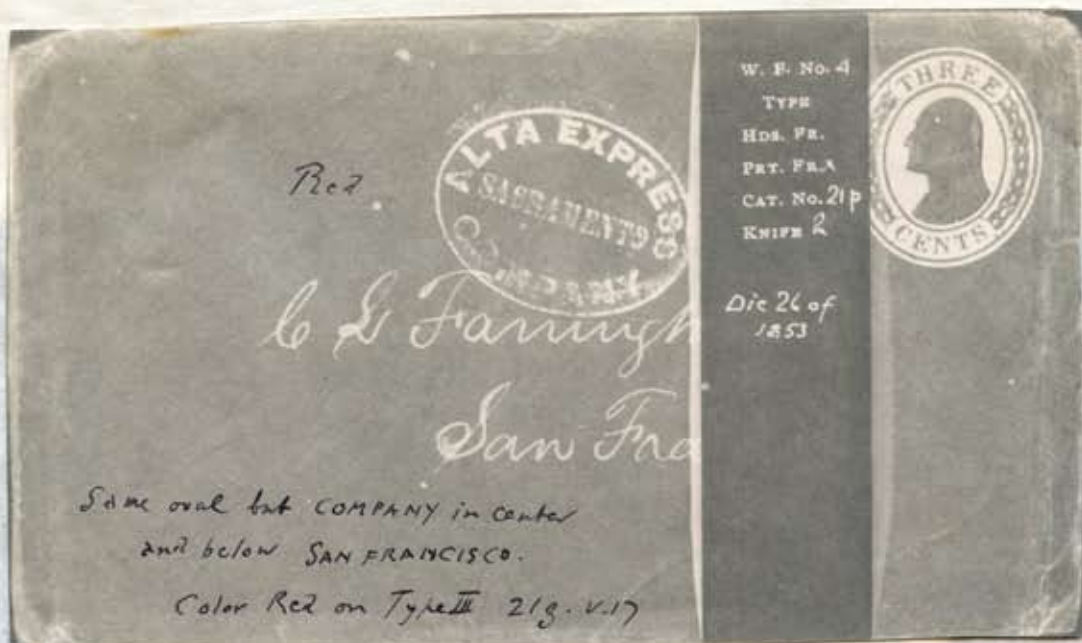 W. F. No. 4
TYPE
HDS. FR.
PRT. FR. X
CAT. No. 21p
KNIFE 2
Die 26 of
1853
THREE
CENTS
ALTA EXPRESS
SACRAMENTO
COMPANY
Red
San Fra
Same oval but COMPANY in center
and below SAN FRANCISCO.
Color Red on Type III 21g. V.17